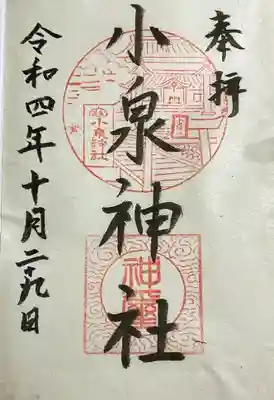 奉拝
小泉神社
令和四年十月二十九日
小泉神社